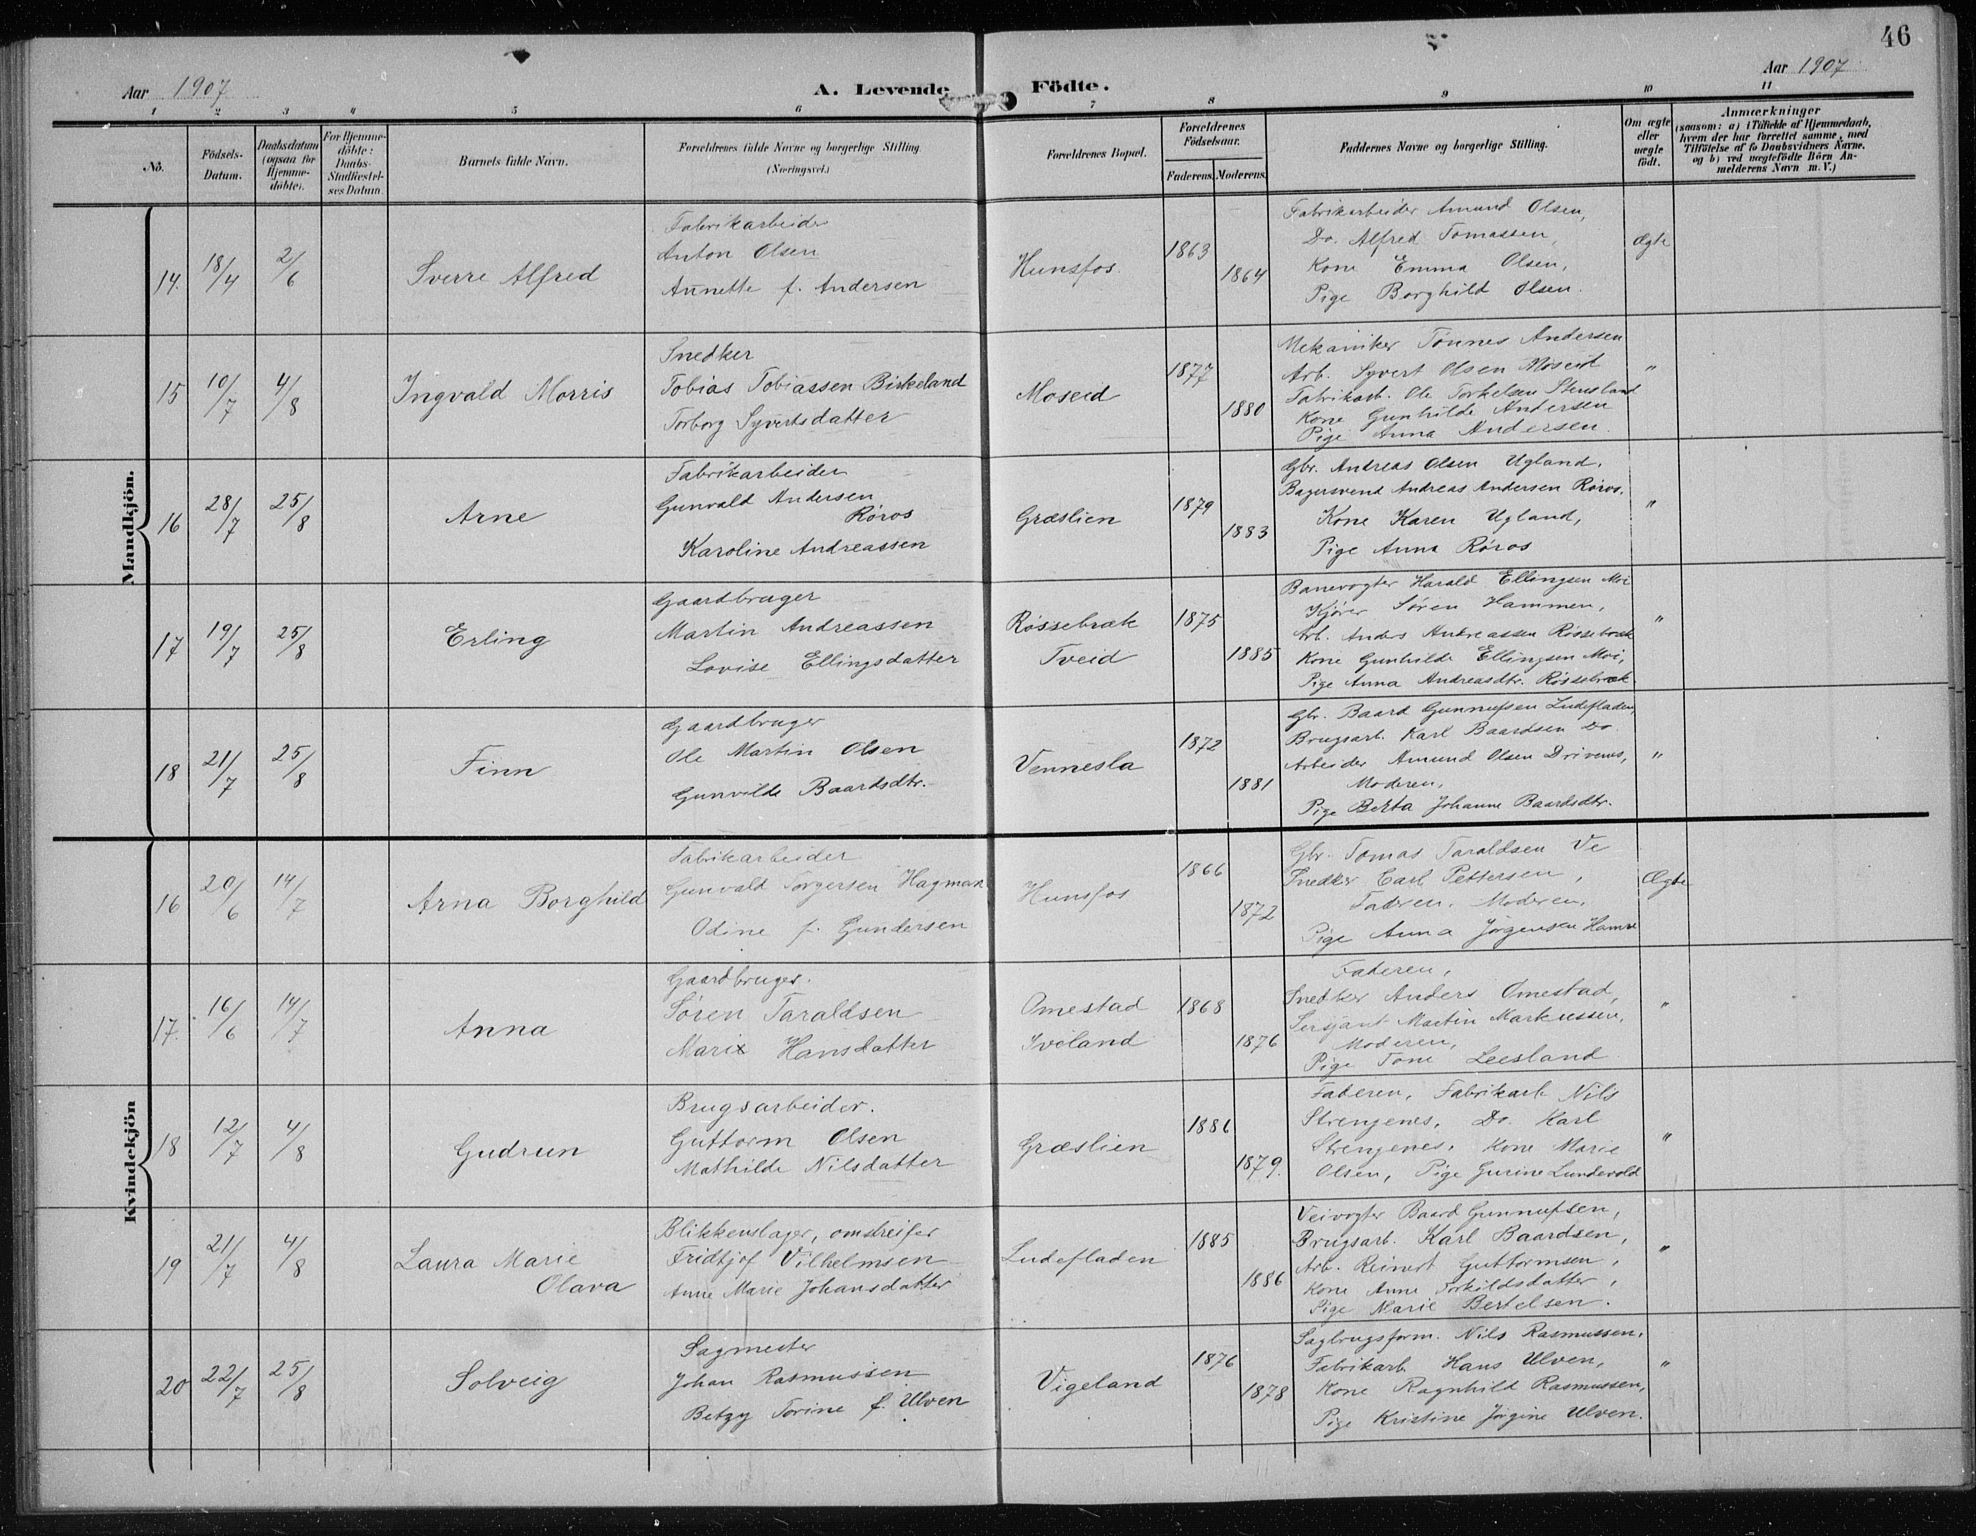 46
Aar 1907
A. Levende Födte.
Aar 1907
1 2 3 4 5 6 7 8 9 10 11
No.
Födsels-Datum.
Daabsdatum (ogsaa for Hjemme-döbte).
For Hjemme-döbte: Daabs-Stadfæstel-ses Datum.
Barnets fulde Navn.
Forældrenes fulde Navne og borgerlige Stilling.
(Næringsvei.)
Forældrenes Bopæl.
Forældrenes Födselsaar.
Faderens. Moderens.
Faddernes Navne og borgerlige Stilling.
Om ægte eller uægte födt.
Anmærkninger
(saasom: a) i Tilfælde af Hjemmedaab, hvem der har forrettet samme, med Tilföielse af to Daabsvidners Navne, og b) ved uægtefödte Börn An-melderens Navn m. V.)
Mandkjön.
14. 18/4 2/6 Sverre Alfred
Fabrikarbeider
Anton Olsen
Annette f. Andersen
Hunsfos 1863 1864
Fabrikarbeider Amund Olsen,
Do. Alfred Tomassen,
Kone Emma Olsen,
Pige Borghild Olsen.
Ægte
15 10/7 4/8 Ingvald Morris
Snedker
Tobias Tobiassen Birkeland
Torborg Syvertsdatter
Moseid 1877 1880
Mekaniker Tønnes Andersen
Arb. Syvert Olsen Moseid
Fabrikarb. Ole Torkelsen Stensland
Kone Gunhilde Andersen
Pige Anna Andersen.
"
16 28/7 25/8 Arne
Fabrikarbeider
Gunvald Andersen
Røros
Karoline Andreassen
Græslien 1879 1883
Gbr. Andreas Olsen Ugland,
Bagersvend Andreas Andersen Røros.
Kone Karen Ugland,
Pige Anna Røros
"
17 19/7 25/8 Erling
Gaardbruger
Martin Andreassen
Lovise Ellingsdatter
Røssebræk
Tveid
1875 1885
Banevogter Harald Ellingsen Moi
Kjører Søren Hammen,
Arb. Anders Andreassen Røssebræk
Kone Gunhilde Ellingsen Moi,
Pige Anna Andreasdtr. Røssebræk
"
18 21/7 25/8 Finn
Gaardbruger
Ole Martin Olsen
Gunvilde Baardsdtr.
Vennesla 1872 1881
Gbr. Baard Gunnufsen Ludefladen,
Brugsarb. Karl Baardsen Do.
Arbeider Amund Olsen Drivenes,
Moderen,
Pige Berta Johanne Baardsdtr.
"
Kvindekjön
16 20/6 14/7 Arna Borghild
Fabrikarbeider
Gunvald Torgersen Hagman
Odine f. Gundersen
Hunsfos 1866 1872
Gbr. Tomas Taraldsen Ve
Snedker Carl Pettersen,
Faderen, Moderen,
Pige Anna Jørgensen Hamre
Ægte
17. 16/6 14/7 Anna
Gaardbruger.
Søren Taraldsen
Marie Hansdatter
Omestad
Iveland
1868 1876
Faderen,
Snedker Anders Omestad,
Sersjant Martin Markussen,
Moderen,
Pige Tone Leesland
"
18 12/7 4/8 Gudrun
Brugsarbeider.
Guttorm Olsen
Mathilde Nilsdatter
Græslien 1886 1879.
Faderen, Fabrikarb. Nils
Strengenes, Do. Karl
Strengenes, Kone Marie
Olsen, Pige Gurine Lundevold
"
19 21/7 4/8 Laura Marie
Olava
Blikkenslager, omstreifer
Fridtjof Vilhelmsen
Anne Marie Johansdatter
Ludefladen 1885 1886
Veivogter Baard Gunnufsen,
Brugsarb. Karl Baardsen,
Arb. Reinert Guttormsen,
Kone Anne Torkildsdatter,
Pige Marie Bertelsen.
"
20 22/7 25/8 Solveig
Sagmester
Johan Rasmussen
Betzy Torine f. Ulven
Vigeland 1876 1878
Sagbrugsform. Nils Rasmussen,
Fabrikarb. Hans Ulven,
Kone Ragnhild Rasmussen,
Pige Kristine Jørgine Ulven.
"